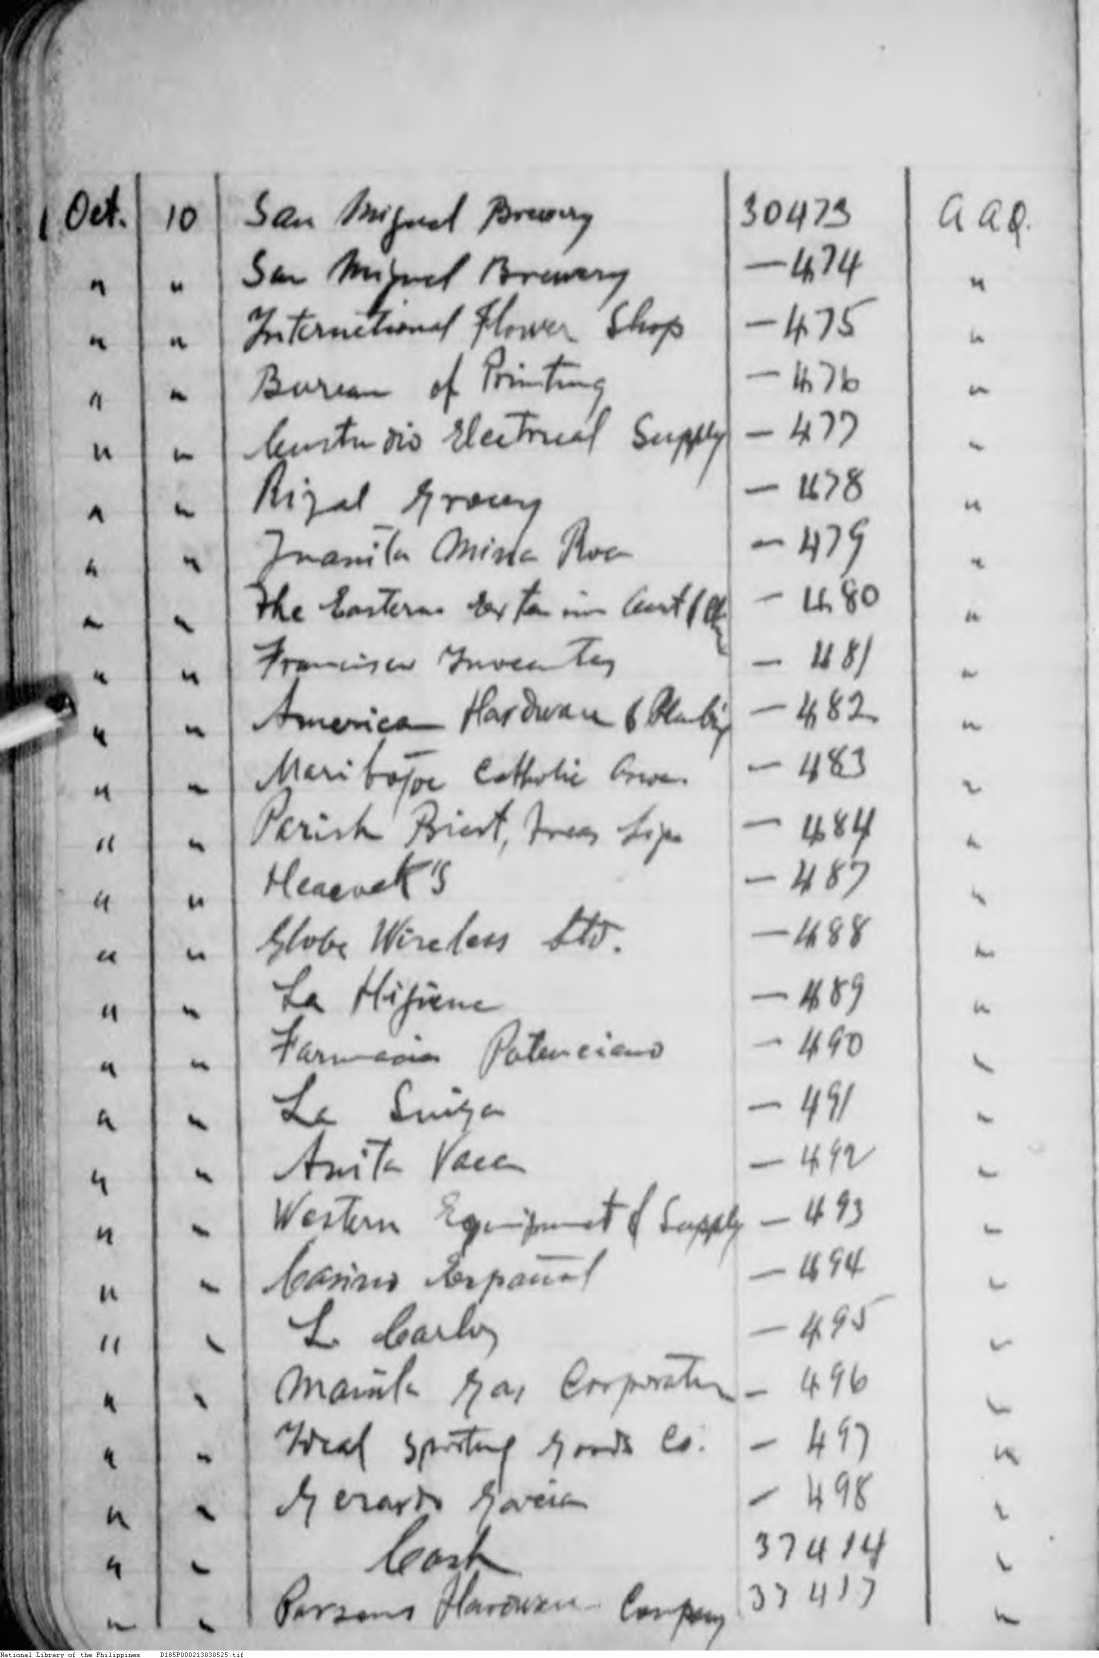 Oct. 10 San Miguel Brewery 30473 A A Q.
" " San Miguel Brewery —474 "
" " International Flower Shop —475 "
" " Bureau of Printing —476 "
" " Custudio Electrical Supply —477 "
" " Rizal Grocery —478 "
" " Juanita Mina Roa —479 "
" " The Eastern Extension &  —480 "
" " Francisco —481 "
" " American Hardware & Plumbing —482 "
" " Catholic —483 "
" " Parish Priest, Lipa —484 "
" " Heacock's —487 "
" " Globe Wireless Ltd. —488 "
" " La Higiene —489 "
" " Farmacia Potenciano —490 "
" " La Suiza —491 "
" " Anita Vaca —492 "
" " Western Equipment & Supply —493 "
" " Casino Español —494 "
" " L. Carlos —495 "
" " Manila Gas Corporation —496 "
" " Ideal Sporting Goods Co. —497 "
" " Gerardo Garcia —498 "
" " Cash 37414 "
" " Parsons Hardware Company 37417 "
National Library of the Philippines D185P000213838525.tif